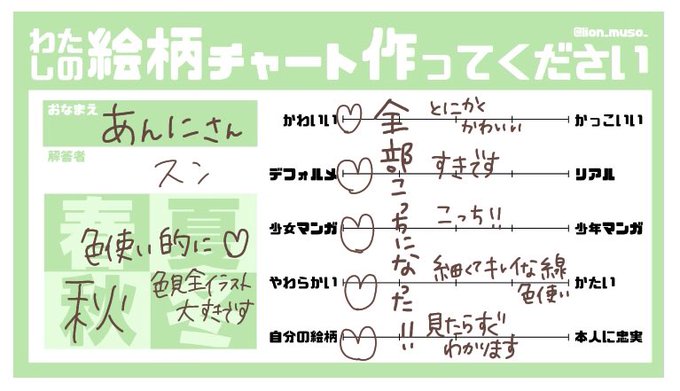 @lion_muso_
わたしの絵柄チャート作ってください
おなまえ
あんにさん
解答者
スン
春 夏
秋 冬
色使い的に♡
秋
色見全イラスト
大すきです
全部こっちになった!!
かわいい
とにかく
かわいい
かっこいい
デフォルメ
すきです
リアル
少女マンガ
こっち!!
少年マンガ
やわらかい
細くてキレイな線
色使い
かたい
自分の絵柄
見たらすぐ
わかります
本人に忠実